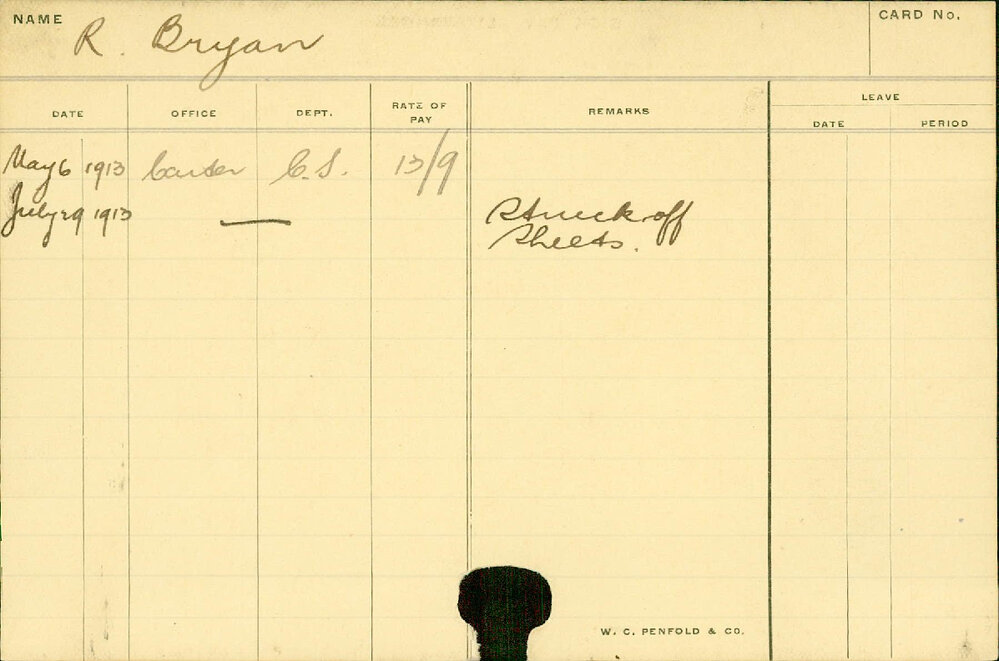 NAME R. Bryan CARD No.
DATE OFFICE DEPT. RATE OF PAY REMARKS LEAVE
DATE PERIOD
May 6 1913 Carter C.S. 13/9
July 29 1913 — Struck off
Sheets.
W. C. PENFOLD & CO.